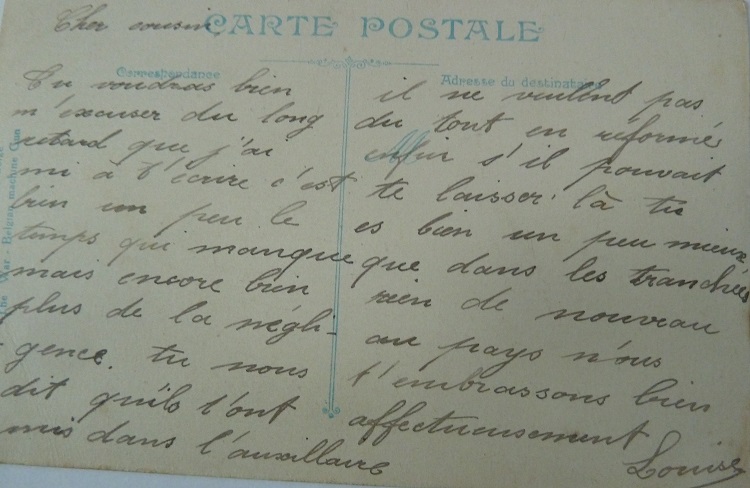 CARTE POSTALE
Correspondance
Adresse du destinataire
The War - Belgian machine Gun
Cher cousin,
Tu voudras bien
m'excuser du long
retard que j'ai
mi à t'écrire c'est
bien un peu le
temps qui manque
mais encore bien
plus de la négli-
gence. tu nous
dit qu'ils t'ont
mis dans l'auxillaire
il ne veulent pas
du tout en réformés
enfin s'il pouvait
te laisser là tu
es bien un peu mieux
que dans les tranchées
rien de nouveau
au pays n'ous
t'embrassons bien
affectueusement
Louise